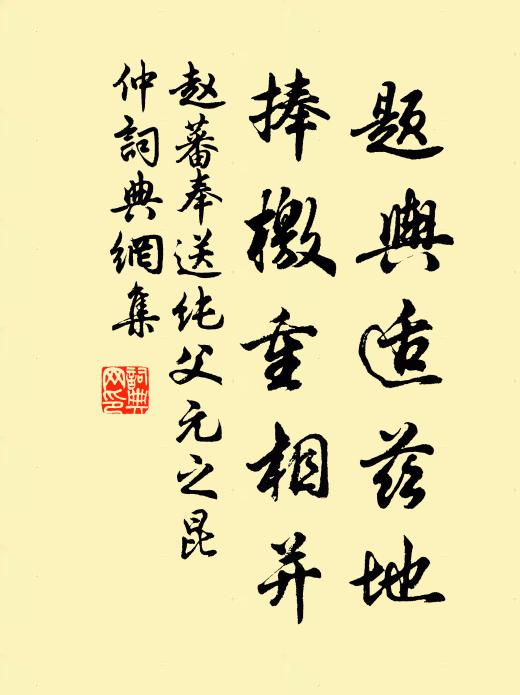 题舆适兹地
捧檄重相并
赵蕃奉送纯父元之昆
仲詞典網集
詞典
网印